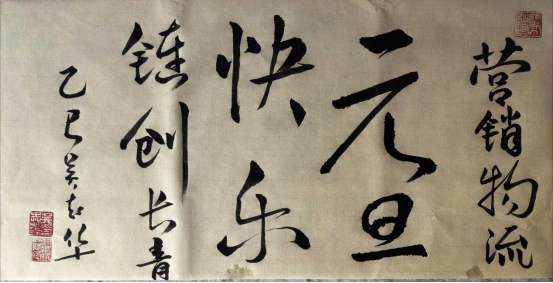 营销物流
元旦
快乐
创长青
乙巳吴志华